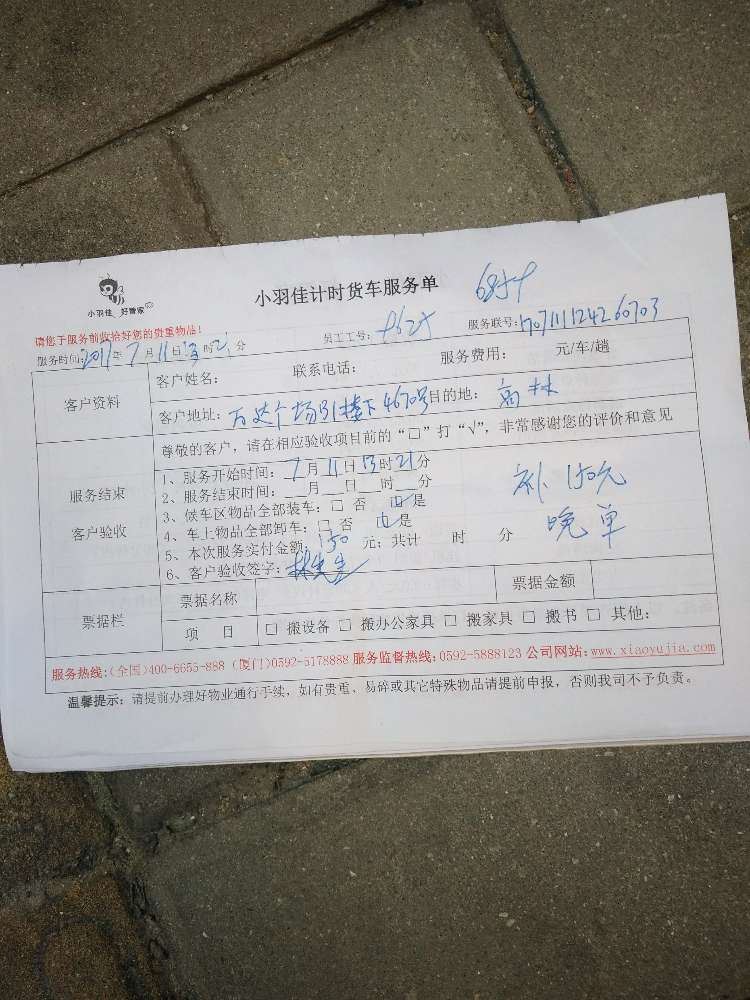 小羽佳 好管家
小羽佳计时货车服务单
请您于服务前收恰好您的贵重物品！
服务时间：2017年7月11日13时21分 员工工号： 服务联号：1707111124260703
客户资料
客户姓名： 联系电话： 服务费用： 元/车/趟
客户地址：万达广场B1楼下4670号 目的地：高林
服务结束
客户验收
尊敬的客户，请在相应验收项目前的“□”打“√”，非常感谢您的评价和意见
1、服务开始时间：7月11日13时21分
2、服务结束时间：__月__日__时__分
3、候车区物品全部装车：□ 否 □ 是
4、车上物品全部卸车：□ 否 □ 是
5、本次服务实付金额：150元；共计 时 分
6、客户验收签字：林先生
补150元
晚单
票据栏
票据名称 票据金额
项 目 □ 搬设备 □ 搬办公家具 □ 搬家具 □ 搬书 □ 其他：
服务热线：(全国)400-6655-888 (厦门)0592-5178888 服务监督热线：0592-5888123 公司网站：www.xiaoyujia.com
温馨提示：请提前办理好物业通行手续，如有贵重、易碎或其它特殊物品请提前申报，否则我司不予负责。